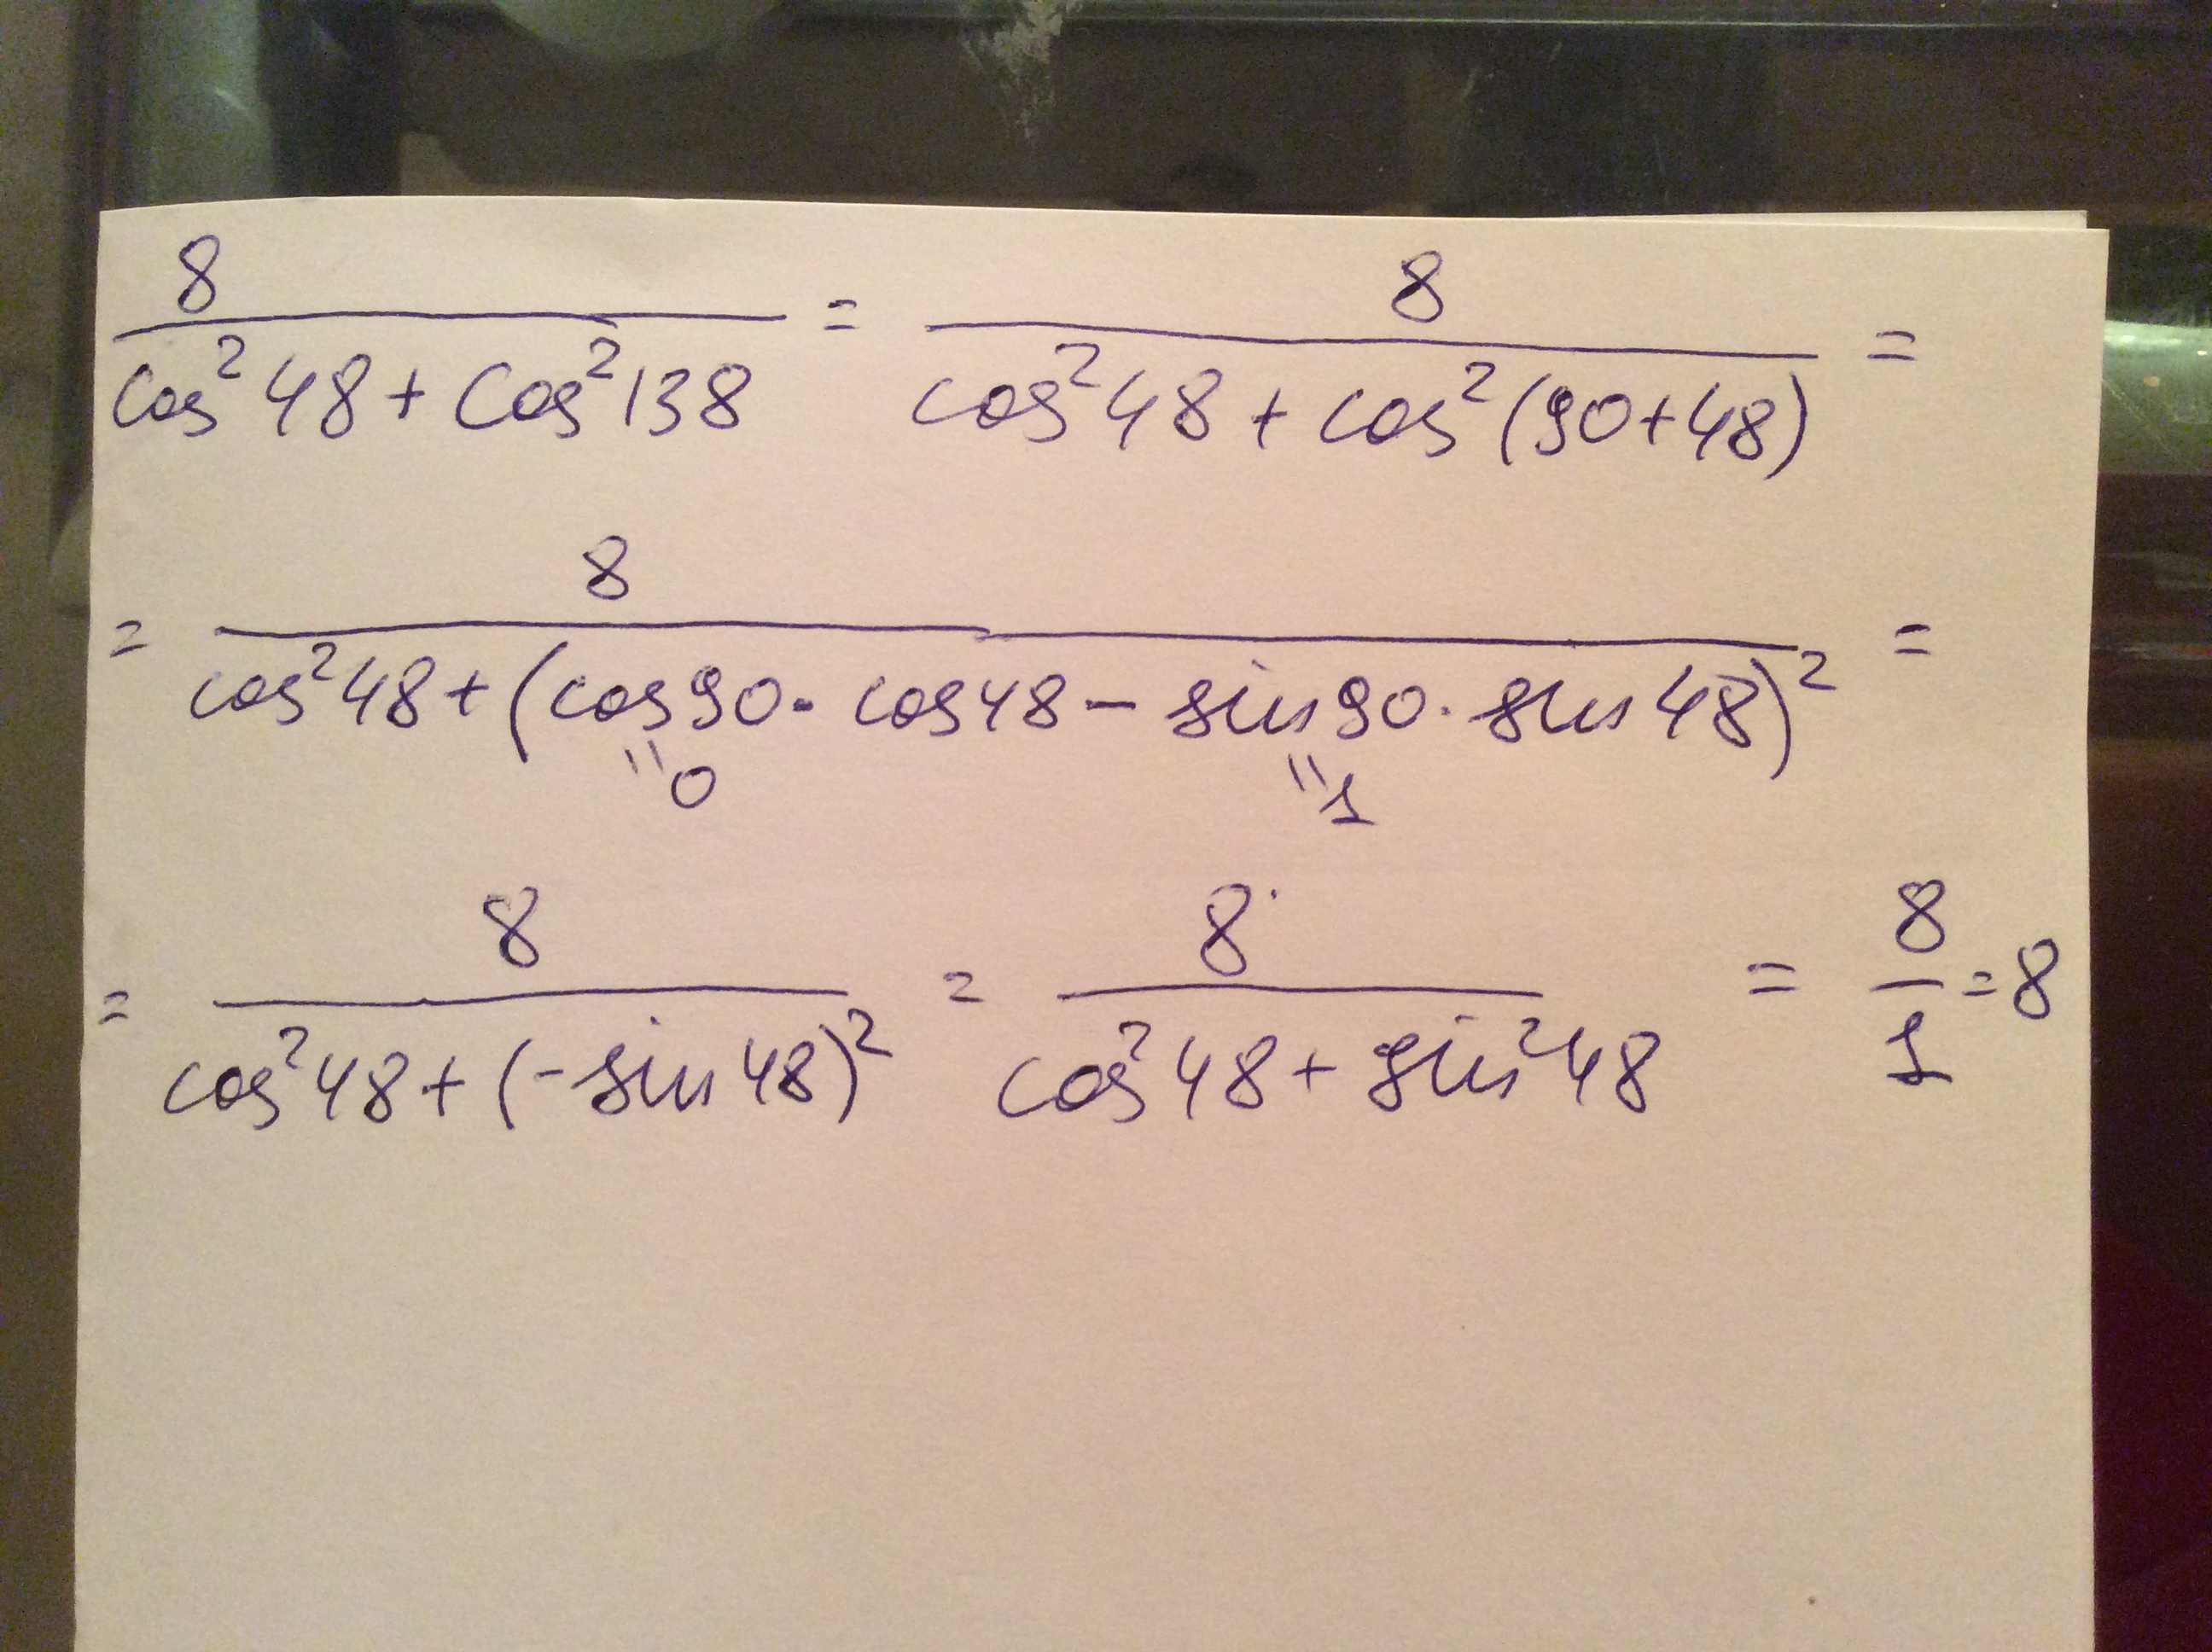 8/(cos² 48 + cos² 138) = 8/(cos² 48 + cos² (90+48)) =
= 8/(cos² 48 + (cos 90 · cos 48 − sin 90 · sin 48)²) =
"0 "1
= 8/(cos² 48 + (−sin 48)²) = 8/(cos² 48 + sin² 48) = 8/1 = 8